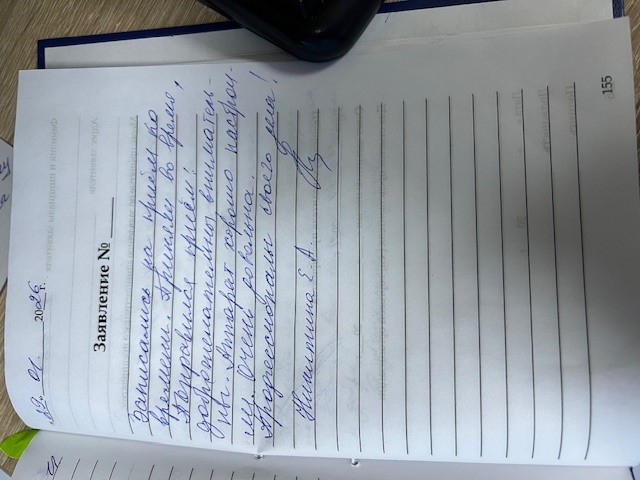 22. 01 2026 г.
Заявление № ___
Записались на приём ко
времени. Приняли во время,
Понравился приём:
доброжелательный внимательн-
ый. Аппарат хорошо настрои-
ли. Очень довольна.
Профессионалы своего дела!
Никитина Е. А
155